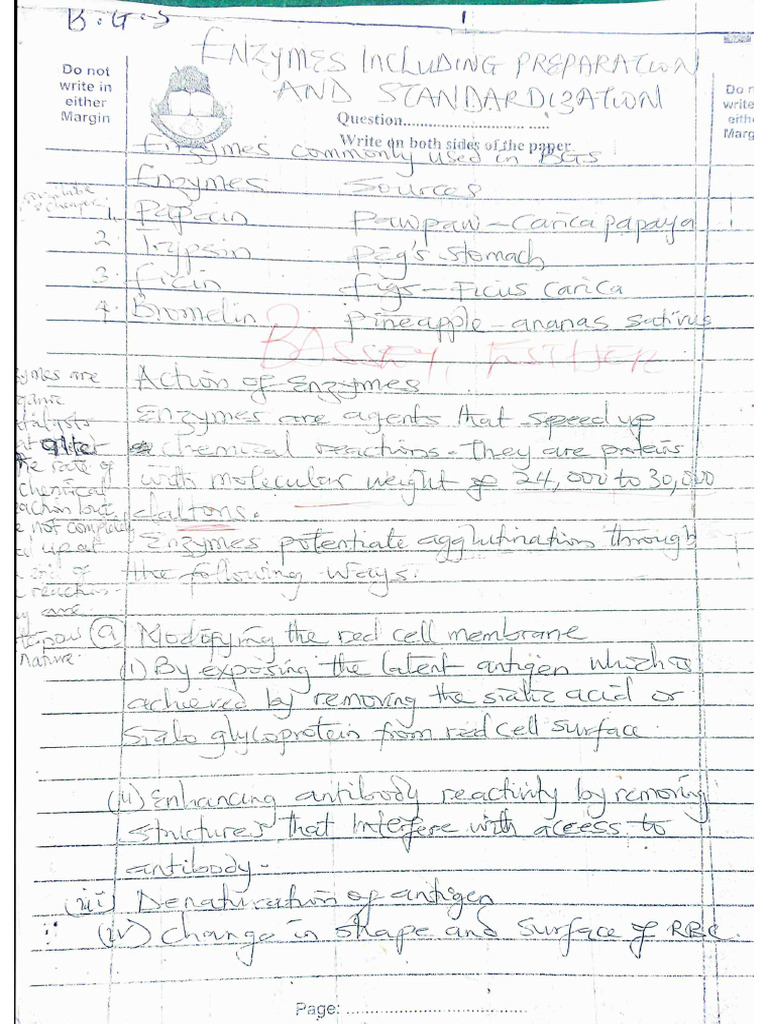 B.G.S
1
ENZYMES INCLUDING PREPARATION
AND STANDARDIZATION
Do not
write in
either
Margin
Do n
write
eith
Marg
Question
Write on both sides of the paper
Enzymes commonly used in BGS
Enzymes Sources
1. Papain Pawpaw - Carica papaya
2 Trypsin Pig's stomach
3. Ficin Figs - Ficus carica
4. Bromelin Pineapple - ananas sativus
BASSEY, ESTHER
Action of Enzymes
Enzymes are agents that speed up
chemical reactions. They are proteins
with molecular weight of 24,000 to 30,000
daltons.
Enzymes potentiate agglutination through
the following ways.
ymes are
alter
he rate of
chemical
action but
e not completely
up at
of
reaction
are
nature.
(a) Modifying the red cell membrane
(i) By exposing the latent antigen which is
achieved by removing the sialic acid or
Sialo glycoprotein from red cell surface.
(ii) Enhancing antibody reactivity by removing
structures that interfere with access to
antibody.
(iii) Denaturation of antigen
(iv) Change in shape and surface of RBC.
Page: